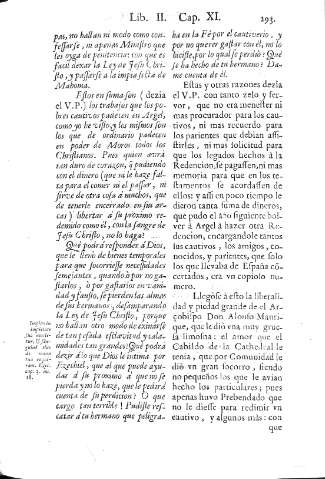 Lib. II. Cap. XI. 293.
pas, no hallan ni modo como con-
fessarse, ni apenas Ministro que
les oyga de penitencia; con que es
facil dexar la Ley de Jesu Chris-
to, y passarse a la impia secta de
Mahoma.
Estos en suma son (dezia
el V.P.) los trabajos que los po-
bres cautivos padecen en Argel,
como yo he visto, y los mismos son
los que de ordinario padecen
en poder de Moros todos los
Christianos. Pues quien avrà
tan duro de coraçon, q pudiendo
con el dinero (que ni le haze fal-
ta para el comer ni el passar, ni
sirve de otra cosa à muchos, que
de tenerle encerrado en sus ar-
cas) libertar à su proximo re-
demido como èl, con la sangre de
Jesu Christo, no lo haga?
Què podrà responder à Dios,
que le llenò de bienes temporales
para que socorriesse necessidades
semejantes, quando ò por no ga-
starlos, ò por gastarlos en vani-
dad y fausto, se pierden las almas
de sus hermanos, desamparando
la Ley de Jesu Christo, porque
no hallan otro modo de eximirse
de tan pesada esclavitud y cala-
midades tan grandes? Què podrà
dezir à lo que Dios le intima por
Ezechiel, que al que puede ayu-
dar à su proximo à que no se
pierda y no lo haze, que le pedirà
cuenta de su perdicion? O que
cargo tan terrible! Pudiste res-
catar à tu hermano que peligra-
ha en la Fè por el cautiverio, y
por no querer gastar con èl, no lo
hiciste, por lo qual se perdiò? Què
se ha hecho de tu hermano? Da-
me cuenta de èl.
Estas y otras razones dezia
el V.P. con tanto zelo y fer-
vor, que no era menester ni
mas procurador para los cau-
tivos, ni mas recuerdo para
los parientes que debian assi-
stirles, ni mas solicitud para
que los legados hechos à la
Redencion, se pagassen, ni mas
memoria para que en los te-
stamentos se acordassen de
ellos: y assi en poco tiempo le
dieron tanta suma de dineros,
que pudo el año siguiente bol-
ver à Argel à hazer otra Re-
dencion, encargandole tantos
sus cautivos, los amigos, co-
nocidos, y parientes, que solo
los que llevaba de España cò-
certados, era vn copioso nu-
mero.
Llegòse à esto la liberali-
dad y piedad grande de el Ar-
çobispo Don Alonso Manri-
que, que le diò vna muy grue-
sa limosna: el amor que el
Cabildo de la Cathedral le
tenia, que por Comunidad le
diò vn gran socorro, siendo
no pequeños los que le avian
hecho los particulares; pues
apenas huvo Prebendado que
no le diesse para redimir vn
cautivo, y algunos más: con
que